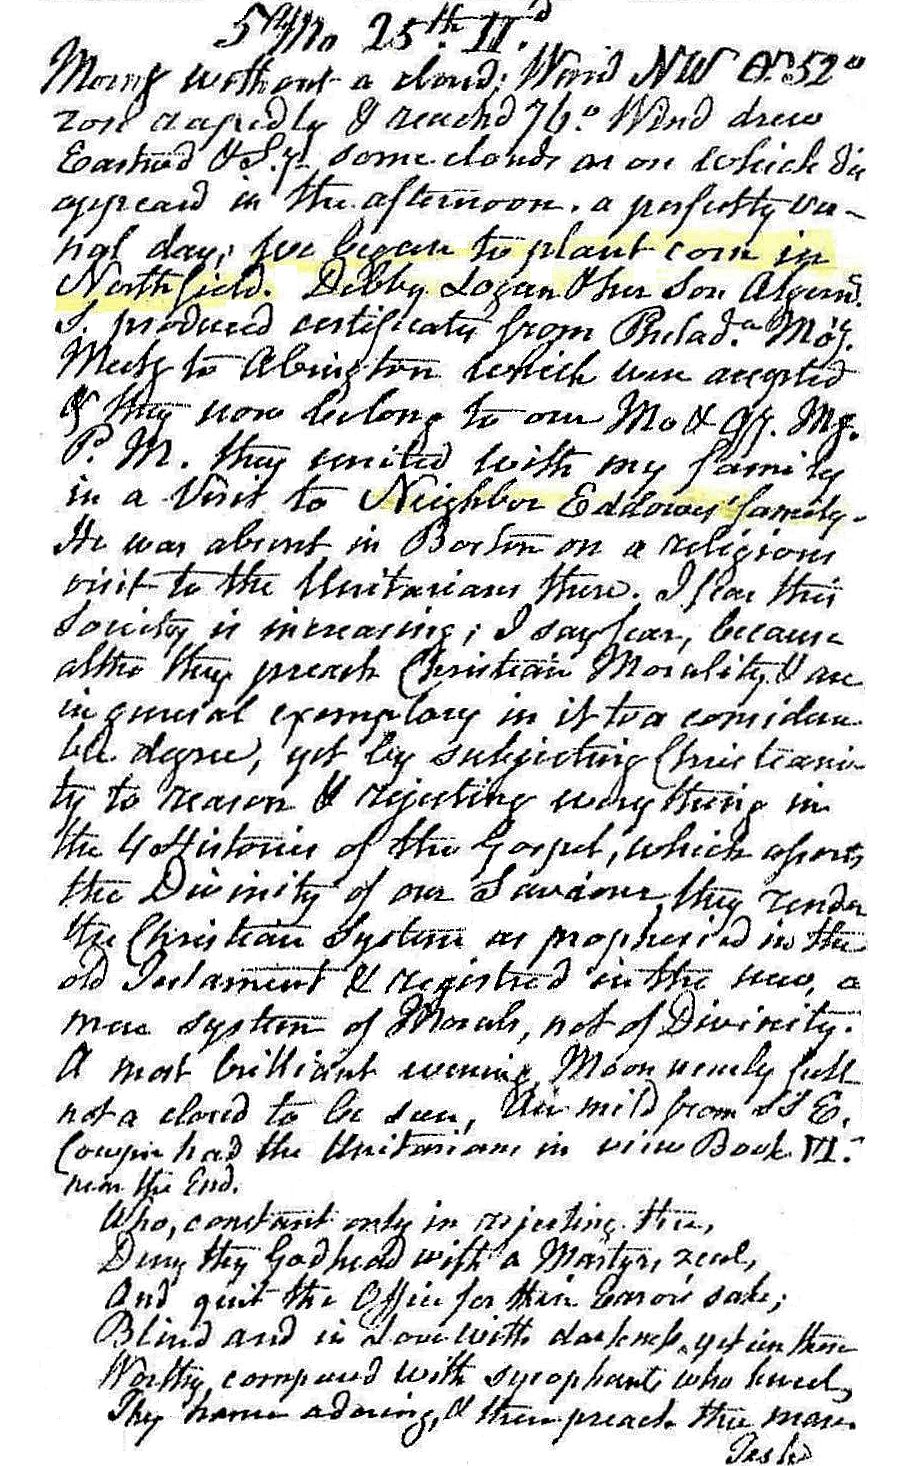 5th Mo 25th II.d
Morng without a cloud; Wind NW 52°
rose rapidly & reachd 76.° Wind drew
Eastwd & S.y some clouds arose which dis
appeard in the afternoon. a perfectly ver-
nal day; we began to plant corn in
Northfield. Debby Logan & her Son Algernn.
S. produced certificates from Philad.a Moy.
Meetg to Abington which were accepted
& they now belong to our Mo & Mg.
P. M. they united with my family
in a Visit to Neighbor Eddowes' family.
He was absent in Boston on a religious
visit to the Unitarians there. I fear this
Society is increasing; I say fear, because
altho they preach Christian Morality & are
in general exemplary in it to a considera
ble degree, yet by subjecting Christiani
ty to reason & rejecting every thing in
the 4 Histories of the Gospel, which asserts
the Divinity of our Saviour, they render
the Christian System as prophesied in the
old Testament & registred in the new, a
mere system of Morals, not of Divinity.
A most brilliant evening, Moon nearly full
not a cloud to be seen, Air mild from S S E.
Cowper had the Unitarians in view Book VI.
near the End.
Who, constant only in rejecting thee,
Deny thy Godhead with a Martyrs zeal,
And quit the Office for their Error's sake;
Blind and in Love with darkness, yet even these
Worthy, compared with sycophants who kneel,
Thy name adoring, & then preach thee man.